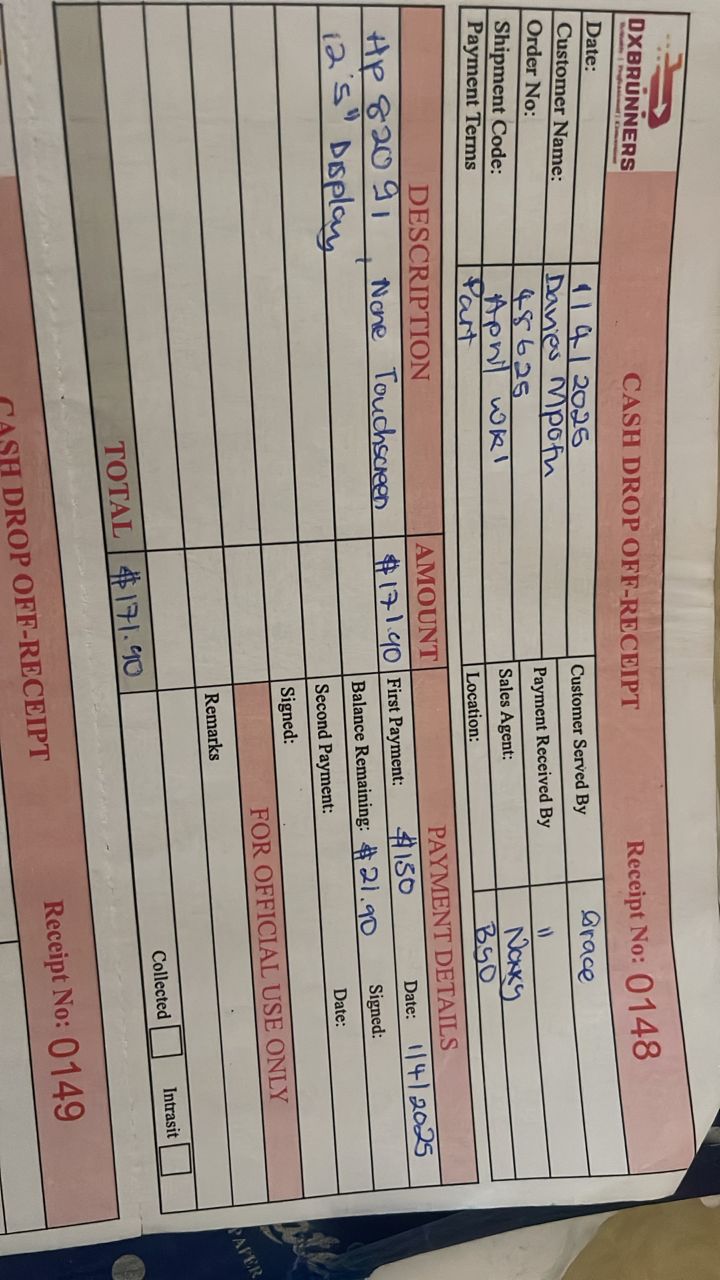 DXBRUNNERS
CASH DROP OFF-RECEIPT
Receipt No: 0148
Date: 1/4/2025
Customer Name: Davies Mpofu
Order No: 48625
Shipment Code: April WK1
Payment Terms Part
Customer Served By Grace
Payment Received By "
Sales Agent: Norky
Location: Byo
DESCRIPTION AMOUNT PAYMENT DETAILS
HP 820 G1, None Touchscreen $171.90
12'5" Display
First Payment: $150 Date: 1/4/2025
Balance Remaining: $21.90 Signed:
Second Payment: Date:
Signed:
FOR OFFICIAL USE ONLY
Remarks
Collected Intrasit
TOTAL $171.90
CASH DROP OFF-RECEIPT
Receipt No: 0149
PAPER